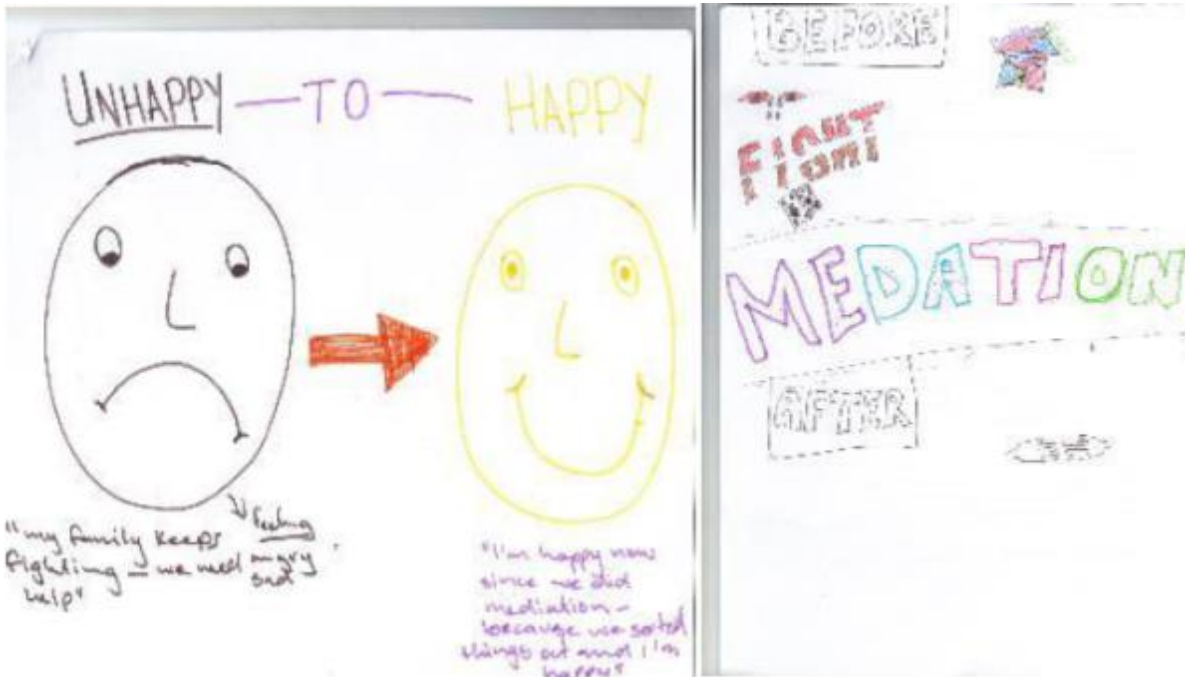 UNHAPPY — TO — HAPPY
"my family keeps
fighting — we need
help"
feeling
angry
sad
"I'm happy now
since we did
mediation —
because we sorted
things out and I'm
happy"
BEFORE
FIGHT
MEDATION
AFTER